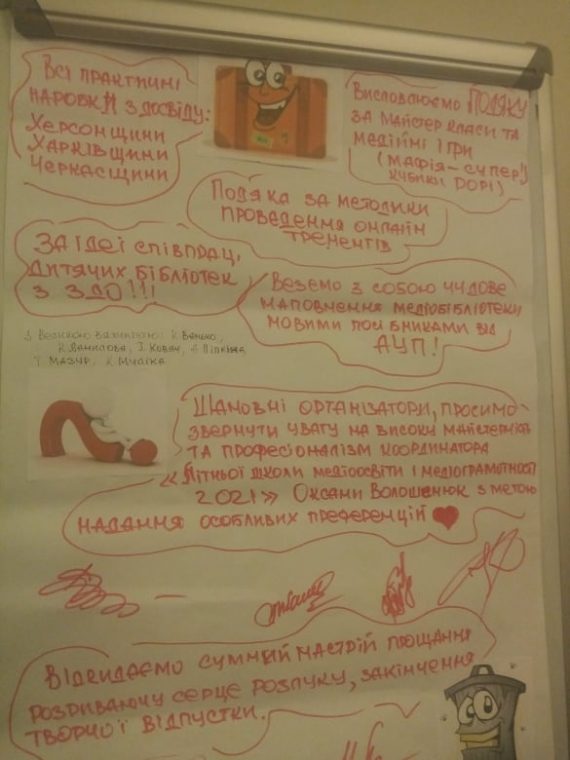 Всі практичні
наробки з досвіду:
Херсонщини
Харківщини
Черкасщини
Висловлюємо подяку
за майстер класи та
медійні ігри
(мафія – супер!
кубики Dорі)
Подяка за методики
проведення онлайн
тренентів
За ідеї співпраці,
дитячих бібліотек
з ЗДО!!!
Веземо з собою чудове
наповнення медіобібліотеки
новими посібниками від
АУП!
З великою вдячністю:
Данилова, Ковач,
Т. Мазур,
Шановні організатори, просимо
звернути увагу на високу майстерність
та професіоналізм координатора
«Літньої школи медіоосвіти і медіограмотності
2021» Оксани Волошенюк з метою
надання особливих преференцій
Відкидаємо сумний настрій прощання
розриваючу серце розлуку, закінчення
творчої відпустки.